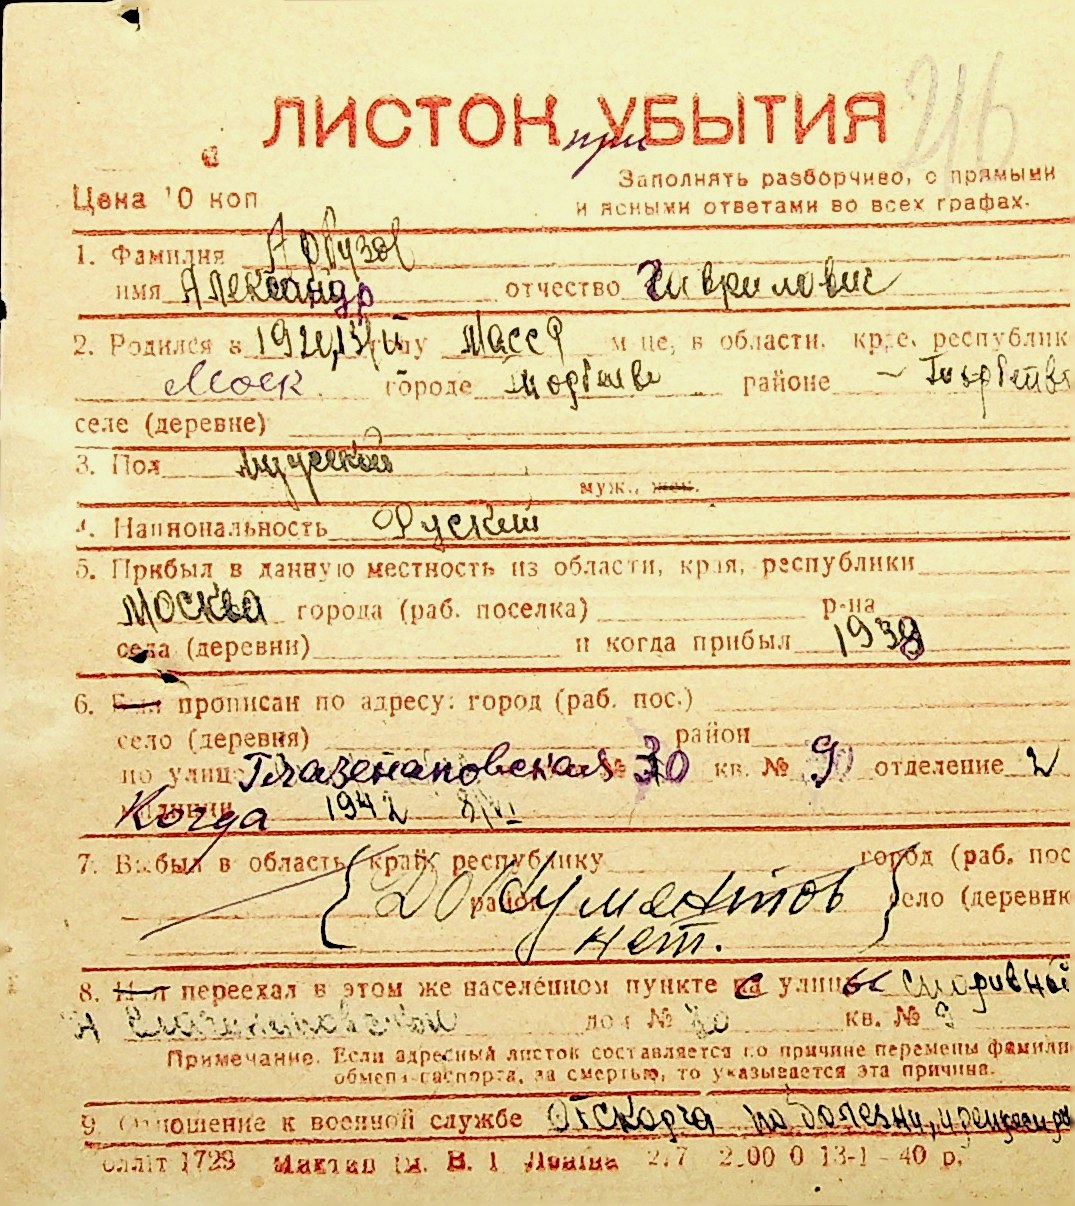 216
ЛИСТОК УБЫТИЯ
при
Цена 10 коп
Заполнять разборчиво, с прямыми
и ясными ответами во всех графах.
1. Фамилия Арбузов
имя Александр отчество Гаврилович
2. Родился в году м-це, в области, крае, республик
Моск. городе районе
селе (деревне)
3. Пол
муж., жен.
4. Национальность Руский
5. Прибыл в данную местность из области, края, республики
Москва города (раб. поселка) р-на
села (деревни) и когда прибыл 1938
6. Был прописан по адресу: город (раб. пос.)
село (деревня) район
по улице № 30 кв. № 9 отделение 2
милиции Когда 1942 8/VI
7. Выбыл в область, край, республику город (раб. пос
район село (деревню
Документов
нет.
8. переехал в этом же населённом пункте с улицы
дом № кв. № 9
Примечание. Если адресный листок составляется по причине перемены фамили
обмена паспорта, за смертью, то указывается эта причина.
9. Отношение к военной службе по болезни,
1728 им. В. І. Леніна